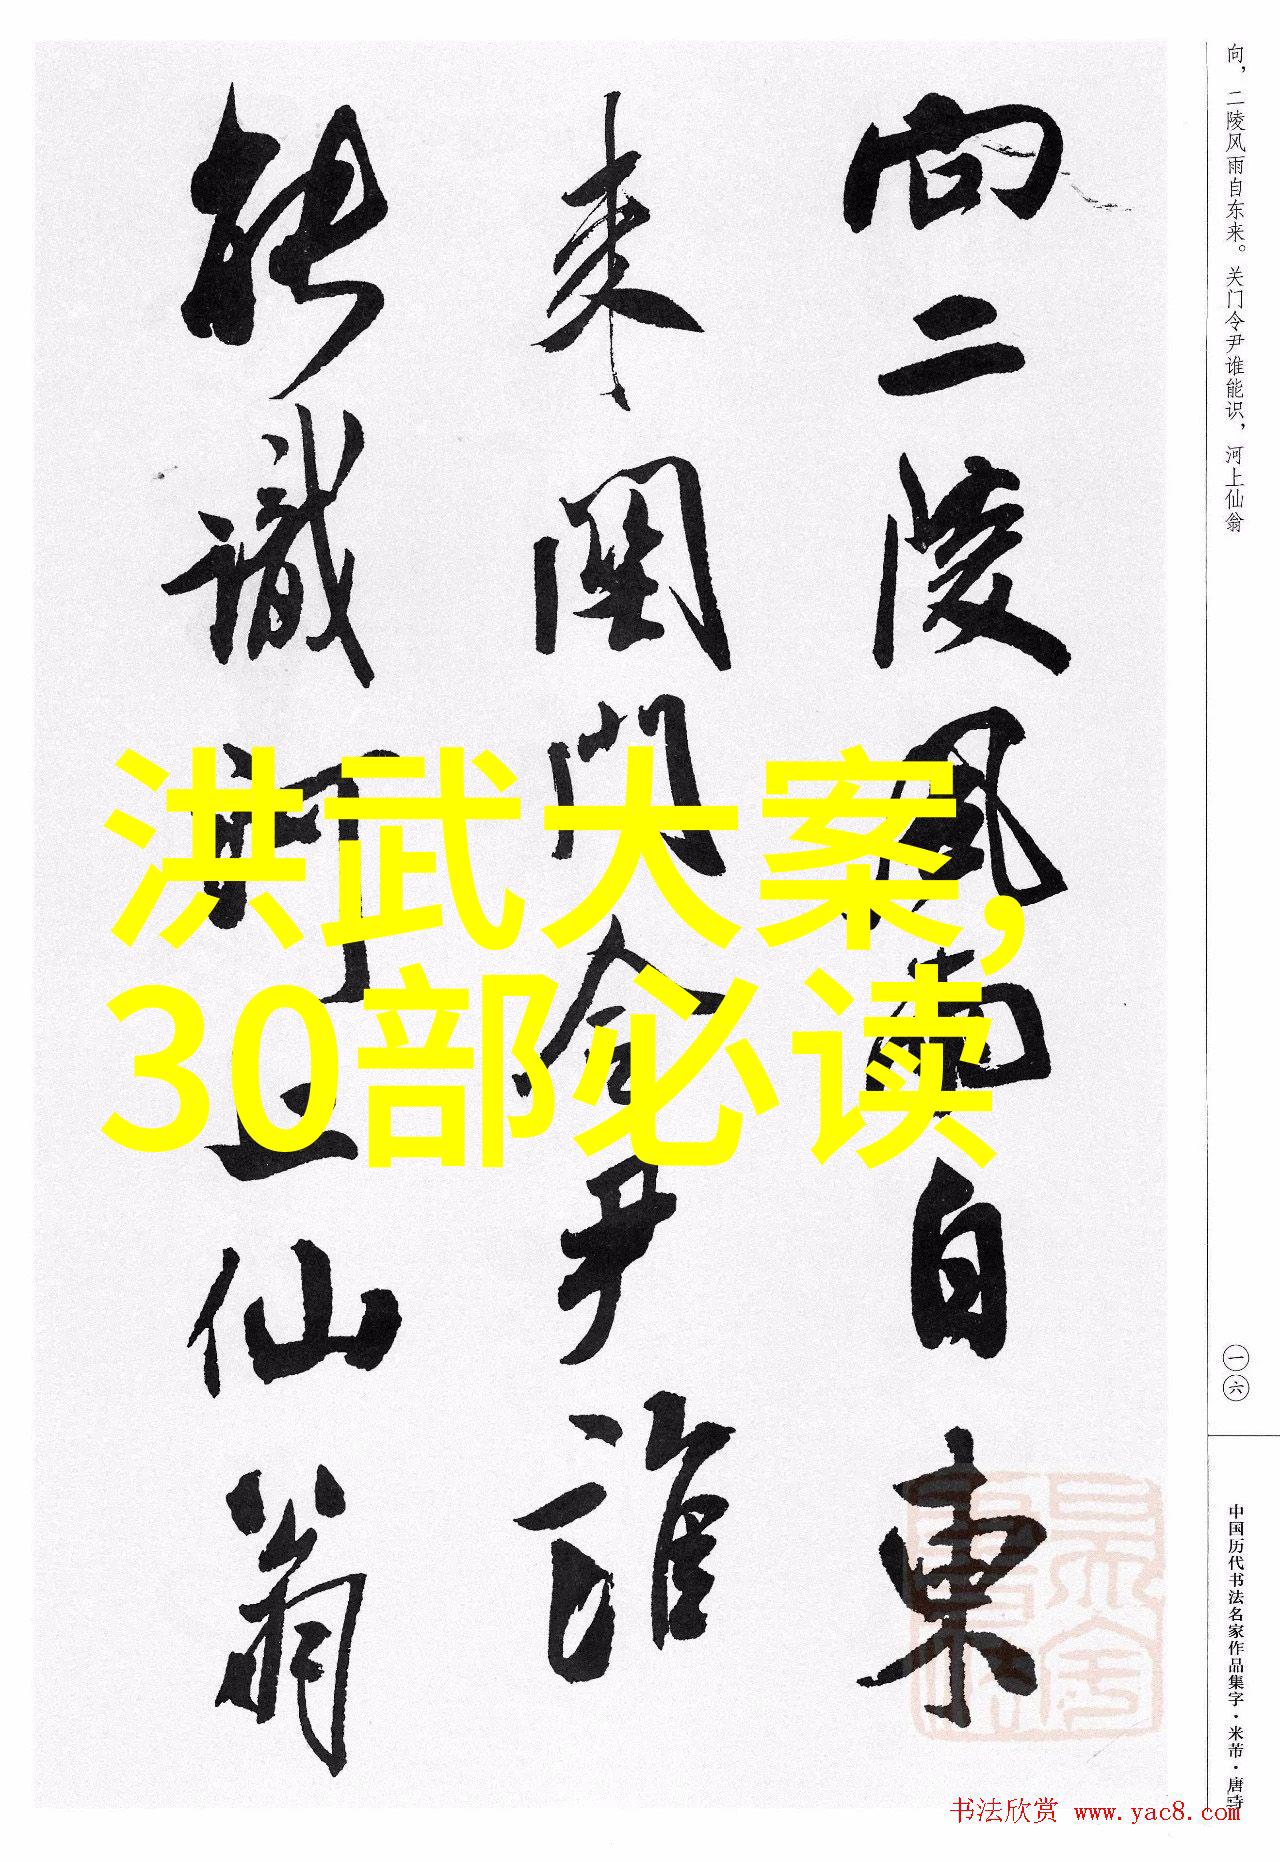 向二陵风雨自東
来関門令尹誰
能識河上仙翁
洪武大案，
30部必读
向，二陵风雨自东来。关门令尹谁能识，河上仙翁
一六
中国历代书法名家作品集字·米芾·唐诗
书法欣赏 www.yac8.com